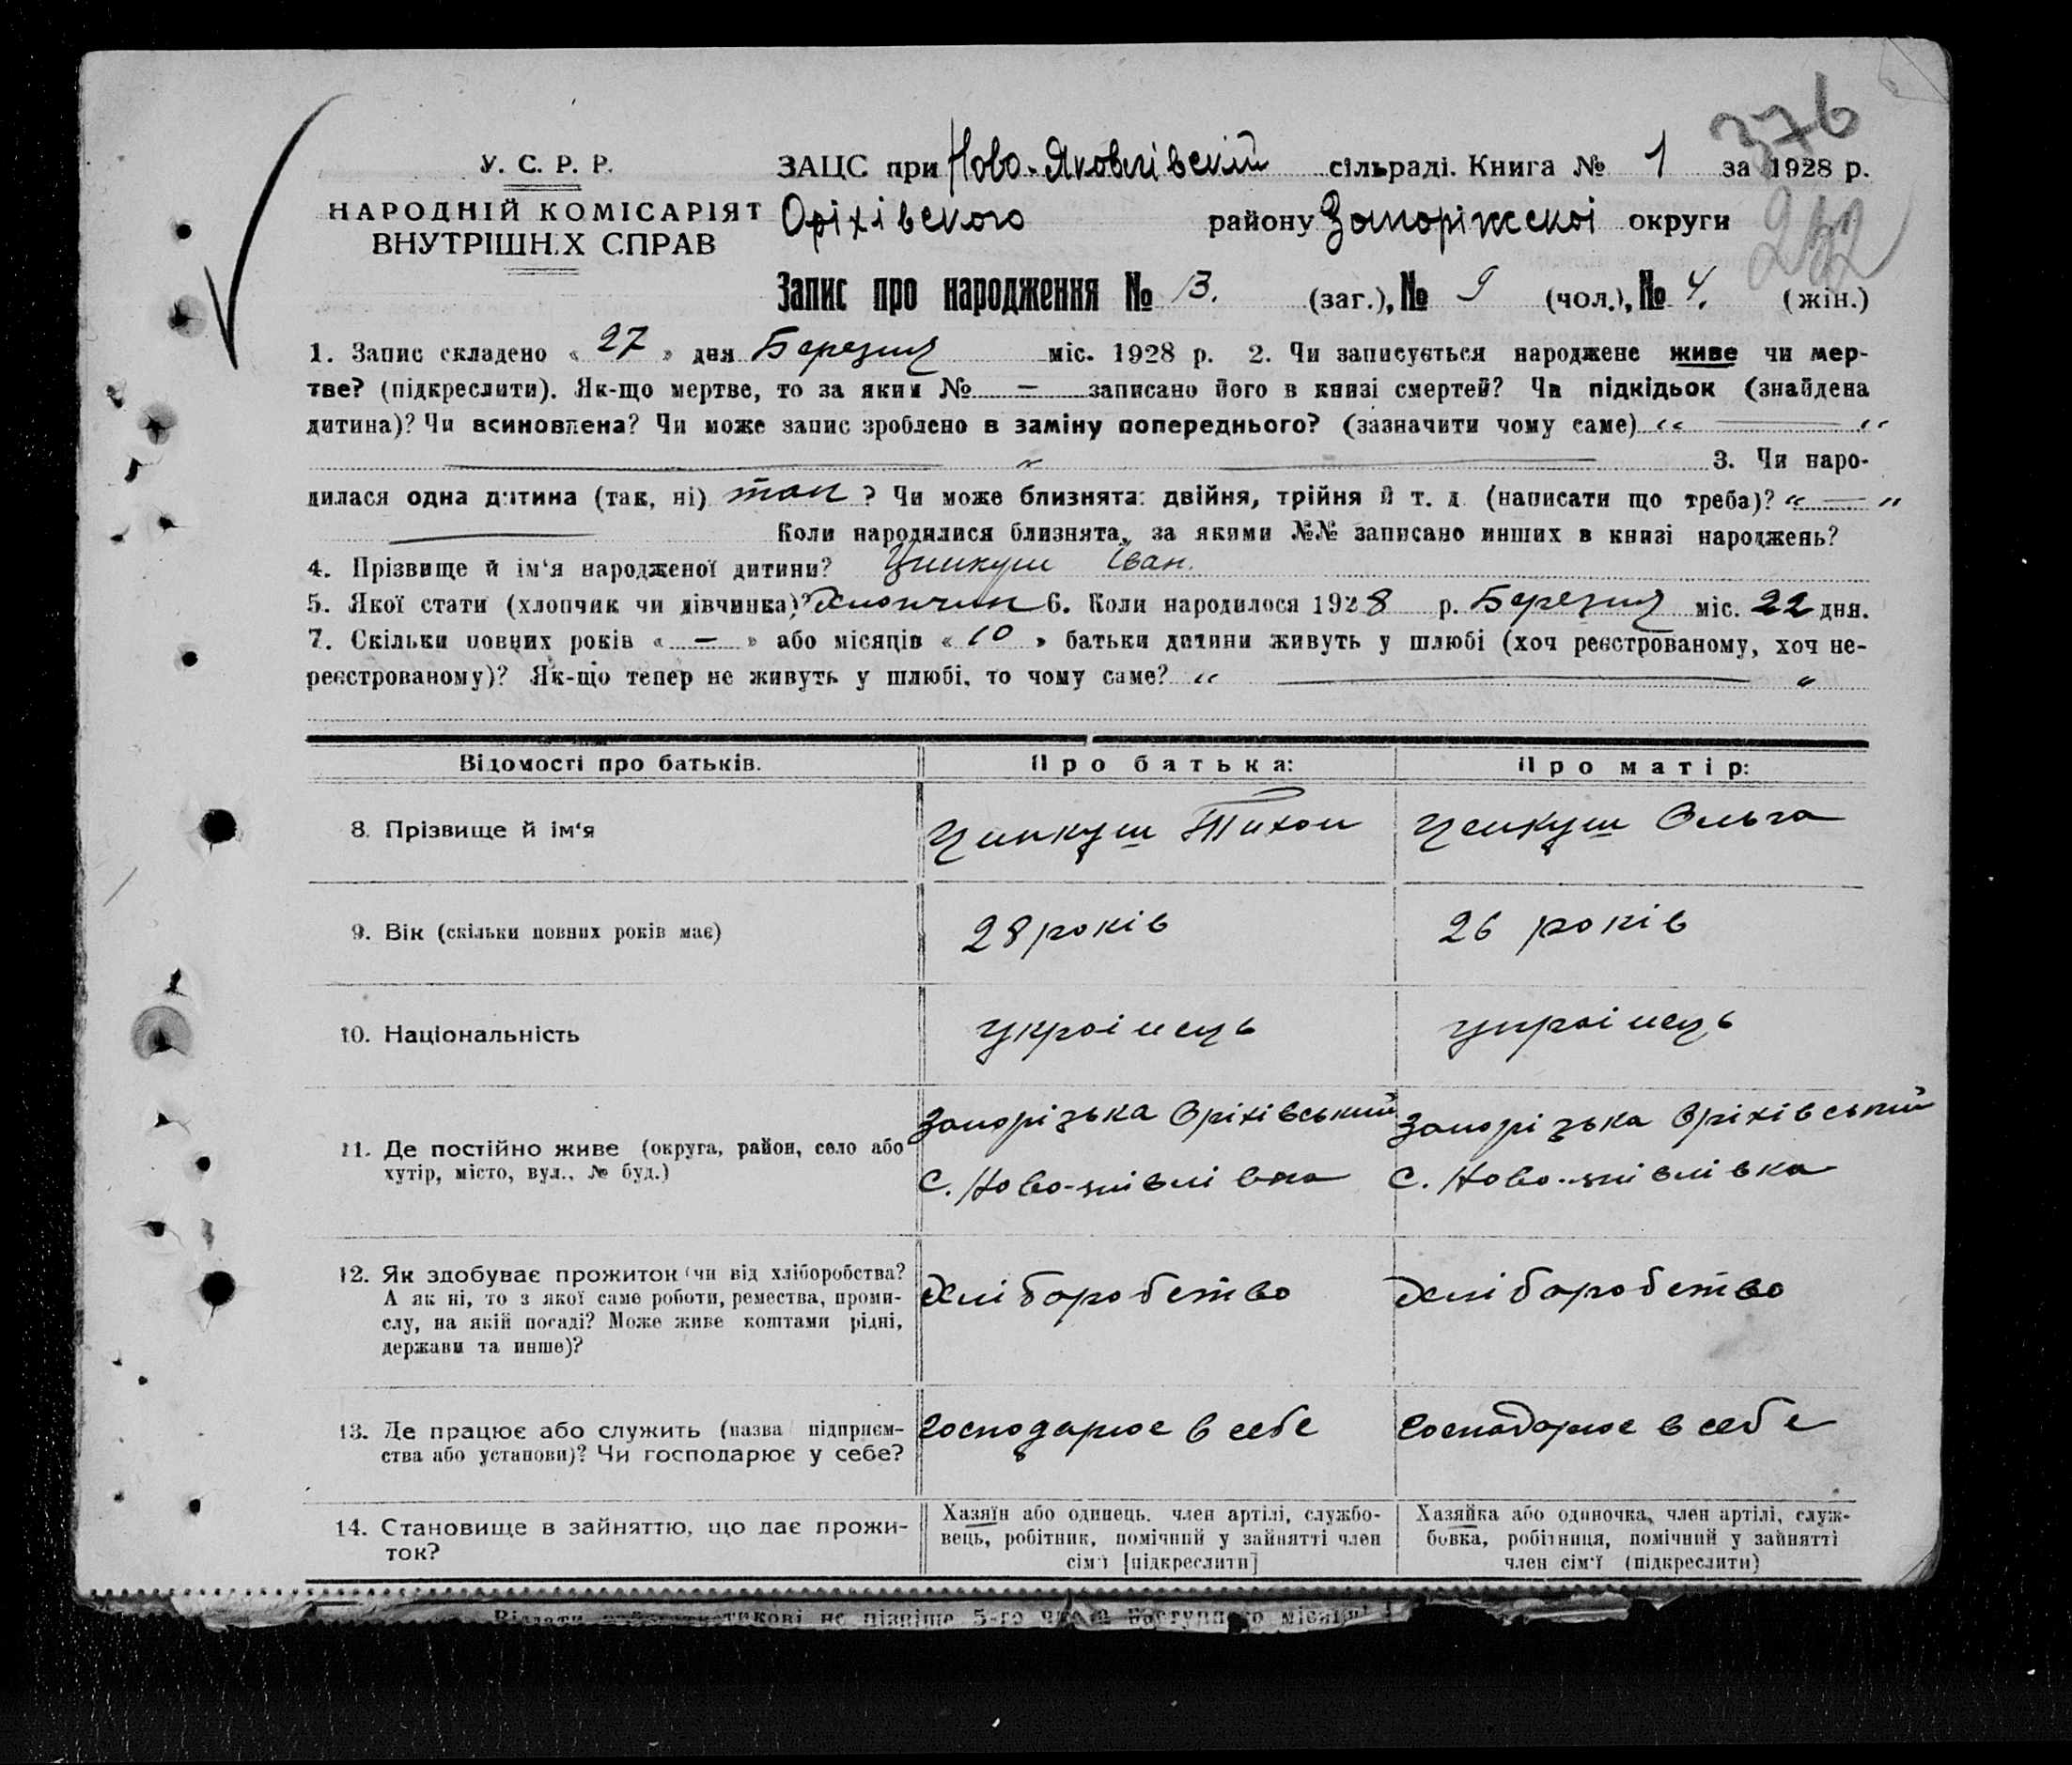 376
У. С. Р. Р.
НАРОДНІЙ КОМІСАРІЯТ
ВНУТРІШНІХ СПРАВ
ЗАЦС при Ново-Яковлівській сільраді. Книга № 1 за 1928 р.
Оріхівского району Запоріжскоі округи
232
Запис про народження № 13. (заг.), № 9 (чол.), № 4. (жін.)
1. Запис складено « 27 » дня Березня міс. 1928 р. 2. Чи записується народжене живе чи мер-
тве? (підкреслити). Як-що мертве, то за яким № — записано його в книзі смертей? Чи підкідьок (знайдена
дитина)? Чи всиновлена? Чи може запис зроблено в заміну попереднього? (зазначити чому саме) „ — "
— „ — 3. Чи наро-
дилася одна дитина (так, ні) так ? Чи може близнята: двійня, трійня й т. д. (написати що треба)? „ — "
— Коли народилися близнята, за якими №№ записано инших в книзі народжень?
4. Прізвище й ім'я народженої дитини? Іван.
5. Якої стати (хлопчик чи дівчинка)? Хлопчик 6. Коли народилося 1928 р. Березня міс. 22 дня.
7. Скільки повних років « — » або місяців « 10 » батьки дитини живуть у шлюбі (хоч реєстрованому, хоч не-
реєстрованому)? Як-що тепер не живуть у шлюбі, то чому саме? „ — "
Відомості про батьків. Про батька: Про матір:
8. Прізвище й ім'я Тихон Ольга
9. Вік (скільки повних років має) 28 років 26 років
10. Національність україиець україиець
11. Де постійно живе (округа, район, село або
хутір, місто, вул., № буд.)
Запорізька Оріхівський
С. Ново-
Запорізька Оріхівський
С. Ново-
12. Як здобуває прожиток (чи від хліборобства?
А як ні, то з якої саме роботи, ремества, проми-
слу, на якій посаді? Може живе коштами рідні,
держави та инше)?
Хліборобство Хліборобство
13. Де працює або служить (назва підприєм-
ства або установи)? Чи господарює у себе?
Господарює в себе Господарює в себе
14. Становище в зайняттю, що дає прожи-
ток?
Хазяїн або одинець, член артілі, службо-
вець, робітник, помічний у зайнятті член
сім'ї [підкреслити]
Хазяйка або одиночка, член артілі, служ-
бовка, робітниця, помічний у зайнятті
член сім'ї (підкреслити)
не пізніше 5-го